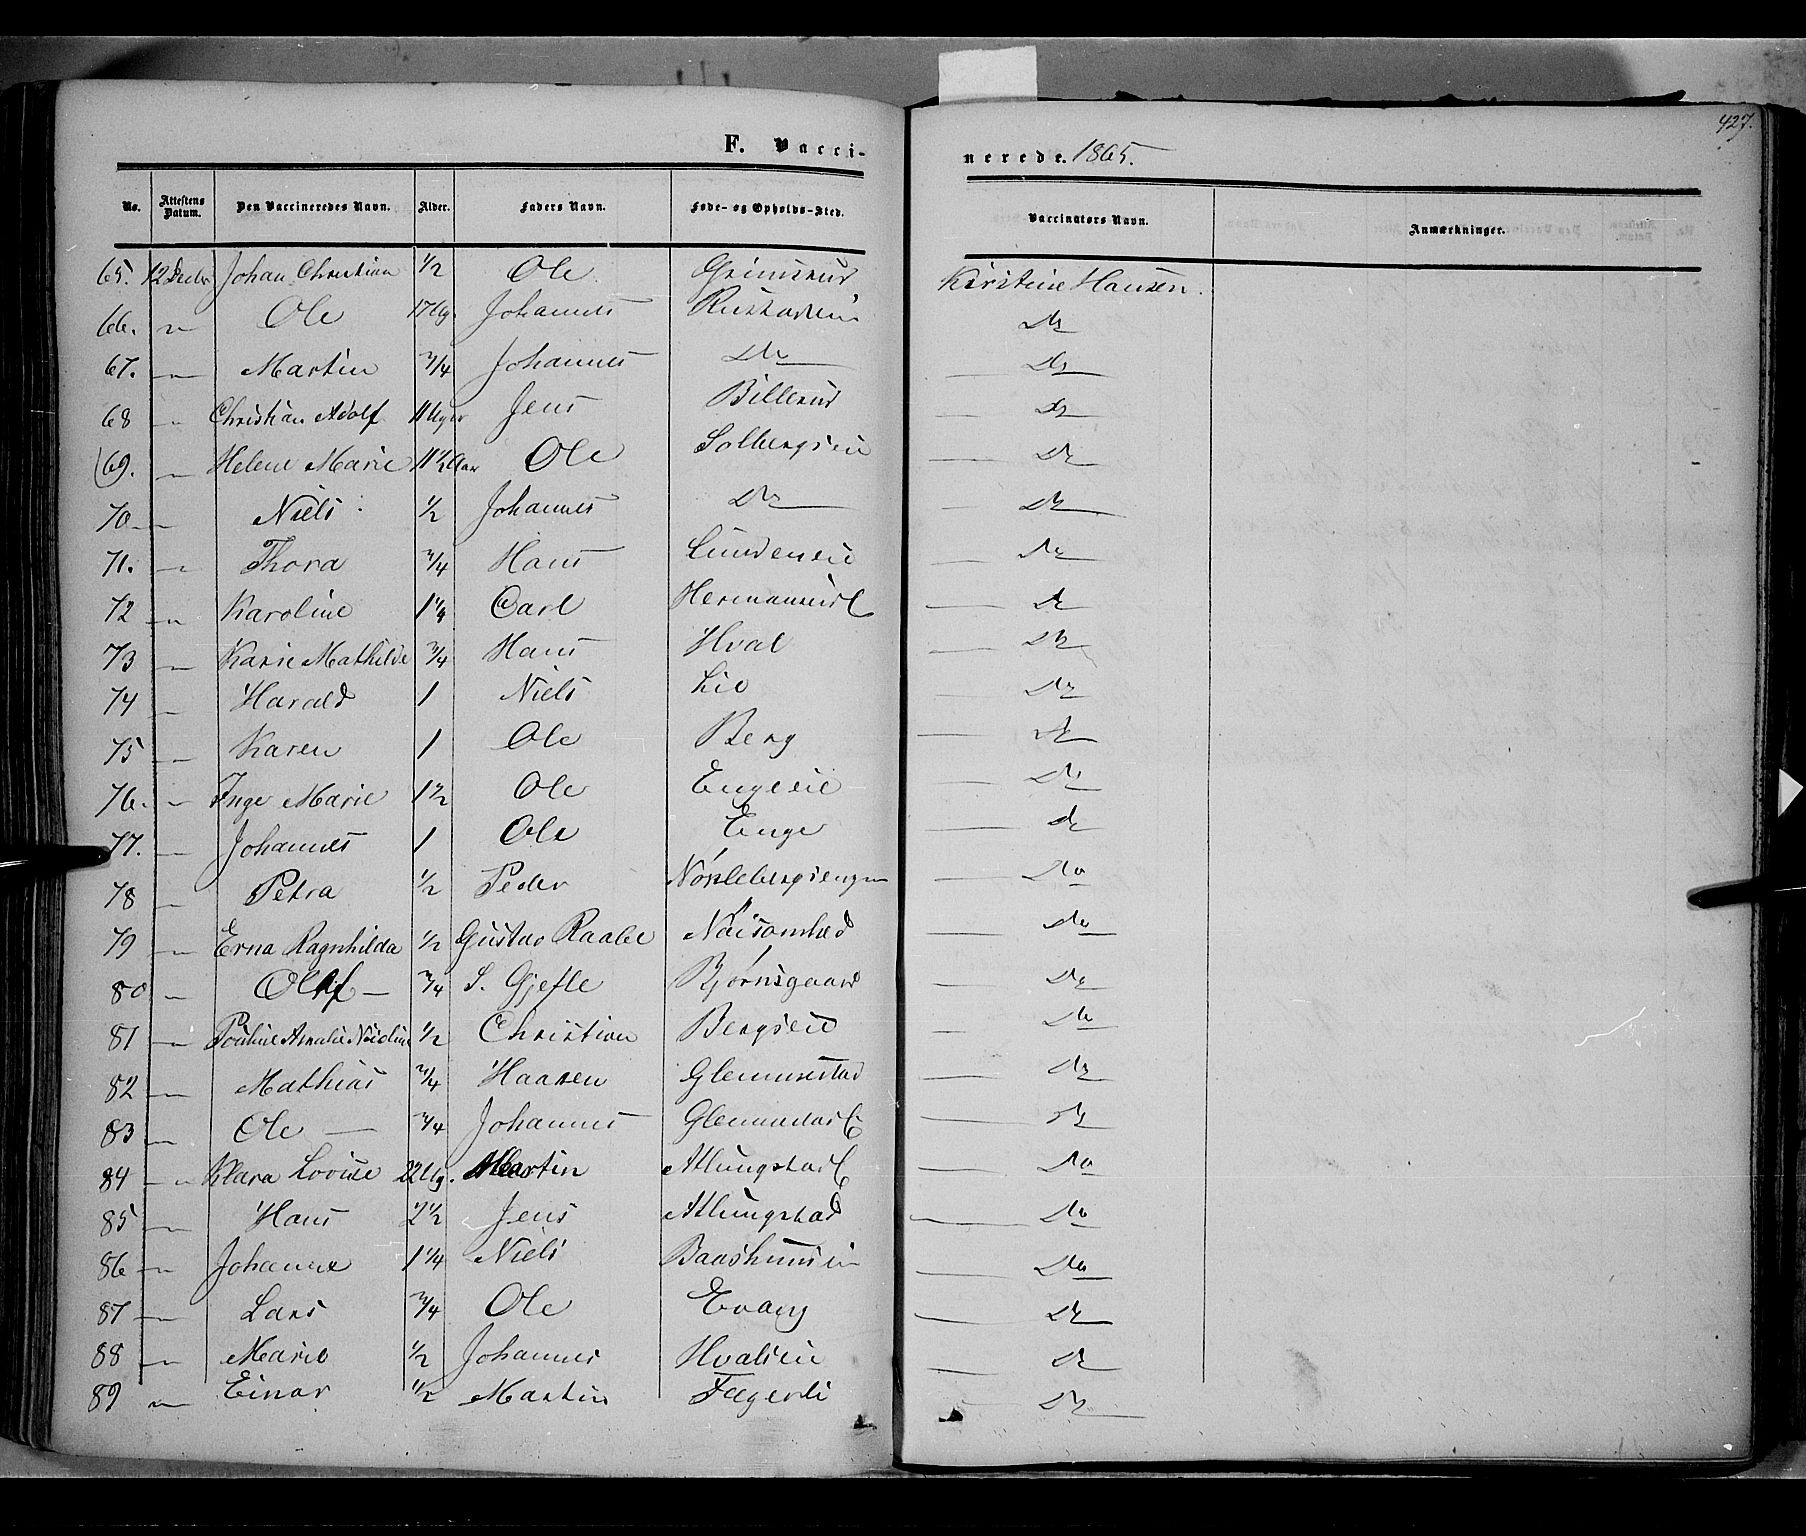 427.
F. Vaccinerede. 1865.
No. Attestens Datum. Den Vaccineredes Navn. Alder. Faders Navn. Føde- og Opholds-Sted. Vaccinators Navn. Anmærkninger.
65. 12 Decbr Johan Christian 1/2 Ole Grimsrud Kirstine Hansen.
66. " Ole 17 Ug. Johannes Do
67. " Martin 3/4 Johannes Do Do
68 " Christian Adolf 11 Uger Jens Billerud Do
69. " Helene Marie 11 1/2 Aar Ole Solbergseie Do
70 " Niels 1/2 Johannes Do Do
71. " Thora 3/4 Hans Lundeneie Do
72 " Karoline 1 1/4 Carl Do
73 " Karie Mathilde 3/4 Hans Hval Do
74 " Harald 1 Niels Lie Do
75 " Karen 1 Ole Berg Do
76. " Inge Marie 1 1/2 Ole Engeeie Do
77. " Johannes 1 Ole Enge Do
78 " Petra 1/2 Peder Nøklebergsengen Do
79 " Erna Ragnhilda 1/2 Gustav Raabe Nøisomhed Do
80 " Oluf 3/4 S. Gjefle Bjørnsgaard Do
81 " Pouline Amalie 1/2 Christian Bergseie Do
82 " Mathias 3/4 Haaken Glemmestad Do
83 " Ole 3/4 Johannes Do
84 " Klara Lovise 22 Ug. Martin Atlungstad E Do
85 " Hans 2 1/2 Jens Atlungstad Do
86 " Johanne 1 1/4 Niels Do
87 " Lars 3/4 Ole Evang Do
88 " Marie 1/2 Johannes Hvalseie Do
89 " Einar 1/2 Martin Fagerli Do